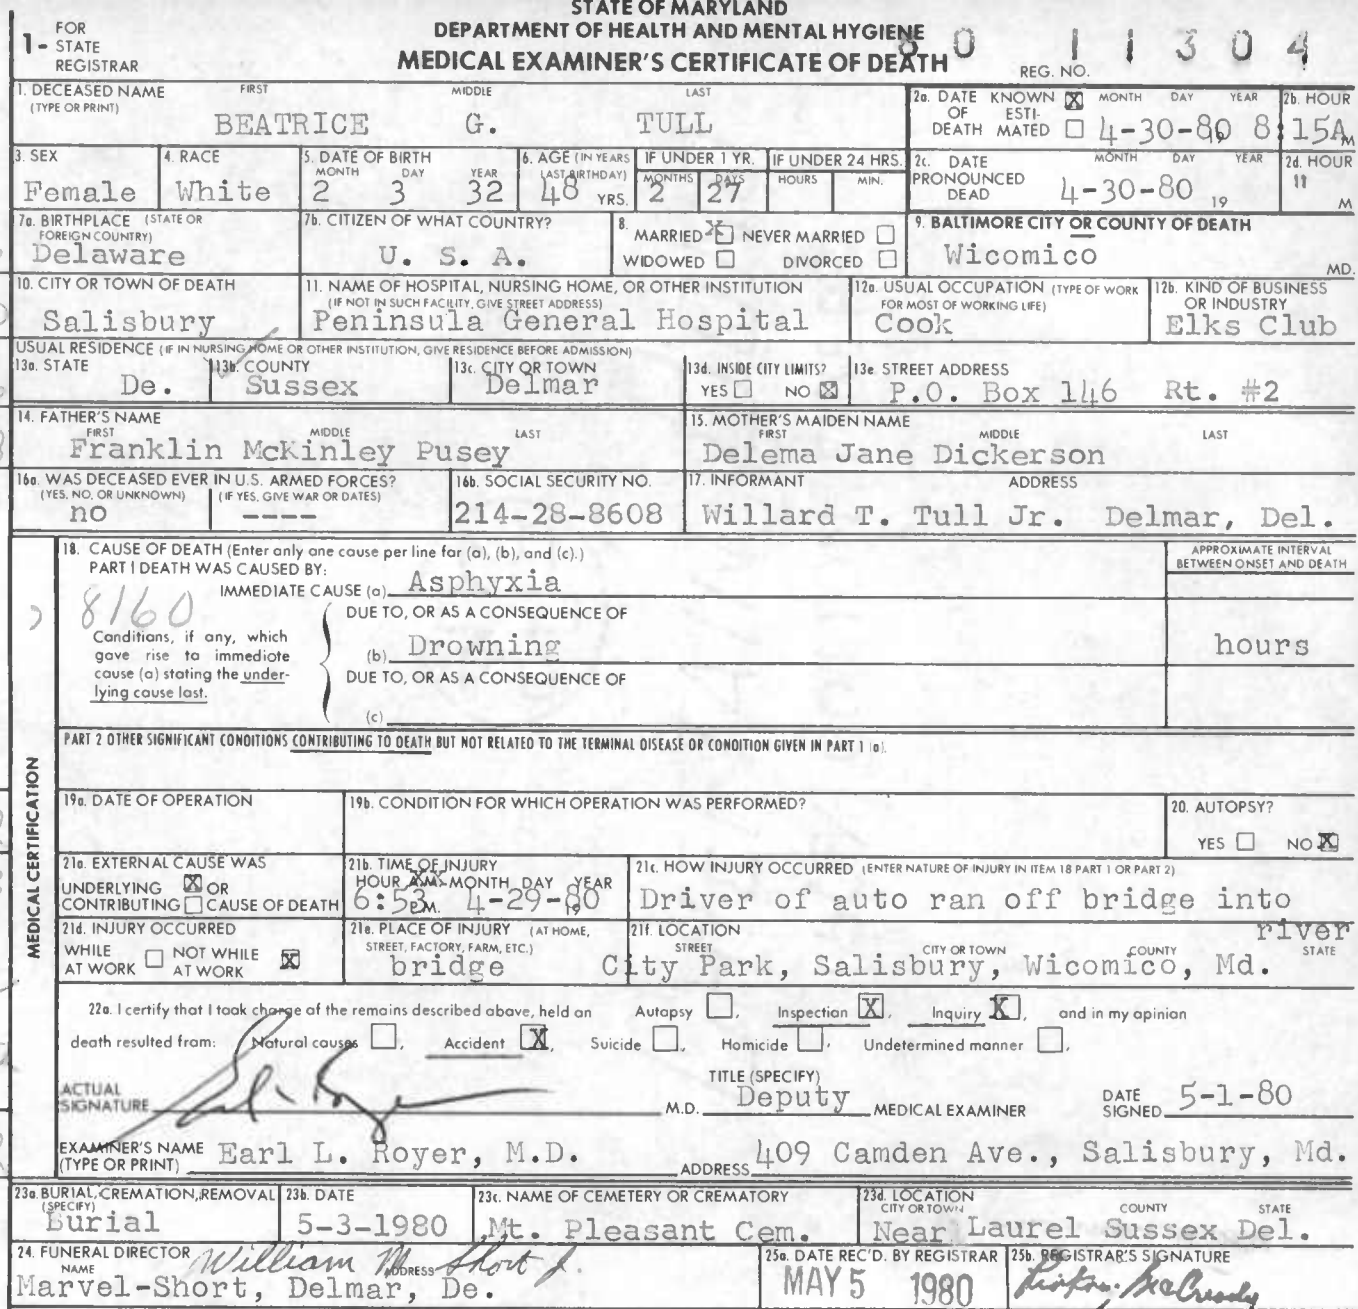 STATE OF MARYLAND
DEPARTMENT OF HEALTH AND MENTAL HYGIENE
MEDICAL EXAMINER'S CERTIFICATE OF DEATH
1 - FOR STATE REGISTRAR
REG. NO. 80 11304
1. DECEASED NAME (TYPE OR PRINT) FIRST MIDDLE LAST
BEATRICE G. TULL
2a. DATE OF DEATH KNOWN [X] ESTIMATED [ ] MONTH DAY YEAR
4-30-80
2b. HOUR
8 15A M
3. SEX
Female
4. RACE
White
5. DATE OF BIRTH MONTH DAY YEAR
2 3 32
6. AGE (IN YEARS LAST BIRTHDAY)
48 YRS.
IF UNDER 1 YR. MONTHS DAYS
2 27
IF UNDER 24 HRS. HOURS MIN.
2c. DATE PRONOUNCED DEAD MONTH DAY YEAR
4-30-80 19
2d. HOUR
" M
7a. BIRTHPLACE (STATE OR FOREIGN COUNTRY)
Delaware
7b. CITIZEN OF WHAT COUNTRY?
U. S. A.
8. MARRIED [X] NEVER MARRIED [ ]
WIDOWED [ ] DIVORCED [ ]
9. BALTIMORE CITY OR COUNTY OF DEATH
Wicomico MD.
10. CITY OR TOWN OF DEATH
Salisbury
11. NAME OF HOSPITAL, NURSING HOME, OR OTHER INSTITUTION
(IF NOT IN SUCH FACILITY, GIVE STREET ADDRESS)
Peninsula General Hospital
12a. USUAL OCCUPATION (TYPE OF WORK FOR MOST OF WORKING LIFE)
Cook
12b. KIND OF BUSINESS OR INDUSTRY
Elks Club
USUAL RESIDENCE (IF IN NURSING HOME OR OTHER INSTITUTION, GIVE RESIDENCE BEFORE ADMISSION)
13a. STATE
De.
13b. COUNTY
Sussex
13c. CITY OR TOWN
Delmar
13d. INSIDE CITY LIMITS?
YES [ ] NO [X]
13e. STREET ADDRESS
P.O. Box 146 Rt. #2
14. FATHER'S NAME FIRST MIDDLE LAST
Franklin McKinley Pusey
15. MOTHER'S MAIDEN NAME FIRST MIDDLE LAST
Delema Jane Dickerson
16a. WAS DECEASED EVER IN U.S. ARMED FORCES?
(YES, NO, OR UNKNOWN) (IF YES, GIVE WAR OR DATES)
no ----
16b. SOCIAL SECURITY NO.
214-28-8608
17. INFORMANT ADDRESS
Willard T. Tull Jr. Delmar, Del.
MEDICAL CERTIFICATION
18. CAUSE OF DEATH (Enter only one cause per line for (a), (b), and (c).)
PART I DEATH WAS CAUSED BY:
APPROXIMATE INTERVAL BETWEEN ONSET AND DEATH
IMMEDIATE CAUSE (a) Asphyxia
8160
DUE TO, OR AS A CONSEQUENCE OF
Conditions, if any, which gave rise to immediate cause (a) stating the underlying cause last.
(b) Drowning
hours
DUE TO, OR AS A CONSEQUENCE OF
(c)
PART 2 OTHER SIGNIFICANT CONDITIONS CONTRIBUTING TO DEATH BUT NOT RELATED TO THE TERMINAL DISEASE OR CONDITION GIVEN IN PART 1 (a).
19a. DATE OF OPERATION
19b. CONDITION FOR WHICH OPERATION WAS PERFORMED?
20. AUTOPSY?
YES [ ] NO [X]
21a. EXTERNAL CAUSE WAS
UNDERLYING [X] OR
CONTRIBUTING [ ] CAUSE OF DEATH
21b. TIME OF INJURY
HOUR A.M. MONTH DAY YEAR
6:53 P.M. 4-29-80 19
21c. HOW INJURY OCCURRED (ENTER NATURE OF INJURY IN ITEM 18 PART 1 OR PART 2)
Driver of auto ran off bridge into river
21d. INJURY OCCURRED
WHILE AT WORK [ ] NOT WHILE AT WORK [X]
21e. PLACE OF INJURY (AT HOME, STREET, FACTORY, FARM, ETC.)
bridge
21f. LOCATION
STREET CITY OR TOWN COUNTY STATE
City Park, Salisbury, Wicomico, Md.
22a. I certify that I took charge of the remains described above, held an Autopsy [ ], Inspection [X], Inquiry [X], and in my opinion
death resulted from: Natural causes [ ], Accident [X], Suicide [ ], Homicide [ ], Undetermined manner [ ].
ACTUAL SIGNATURE M.D.
TITLE (SPECIFY)
Deputy MEDICAL EXAMINER
DATE SIGNED 5-1-80
EXAMINER'S NAME (TYPE OR PRINT) Earl L. Royer, M.D.
ADDRESS 409 Camden Ave., Salisbury, Md.
23a. BURIAL, CREMATION, REMOVAL (SPECIFY)
Burial
23b. DATE
5-3-1980
23c. NAME OF CEMETERY OR CREMATORY
Mt. Pleasant Cem.
23d. LOCATION CITY OR TOWN COUNTY STATE
Near Laurel Sussex Del.
24. FUNERAL DIRECTOR
NAME ADDRESS
William M Short Jr.
Marvel-Short, Delmar, De.
25a. DATE REC'D. BY REGISTRAR
MAY 5 1980
25b. REGISTRAR'S SIGNATURE